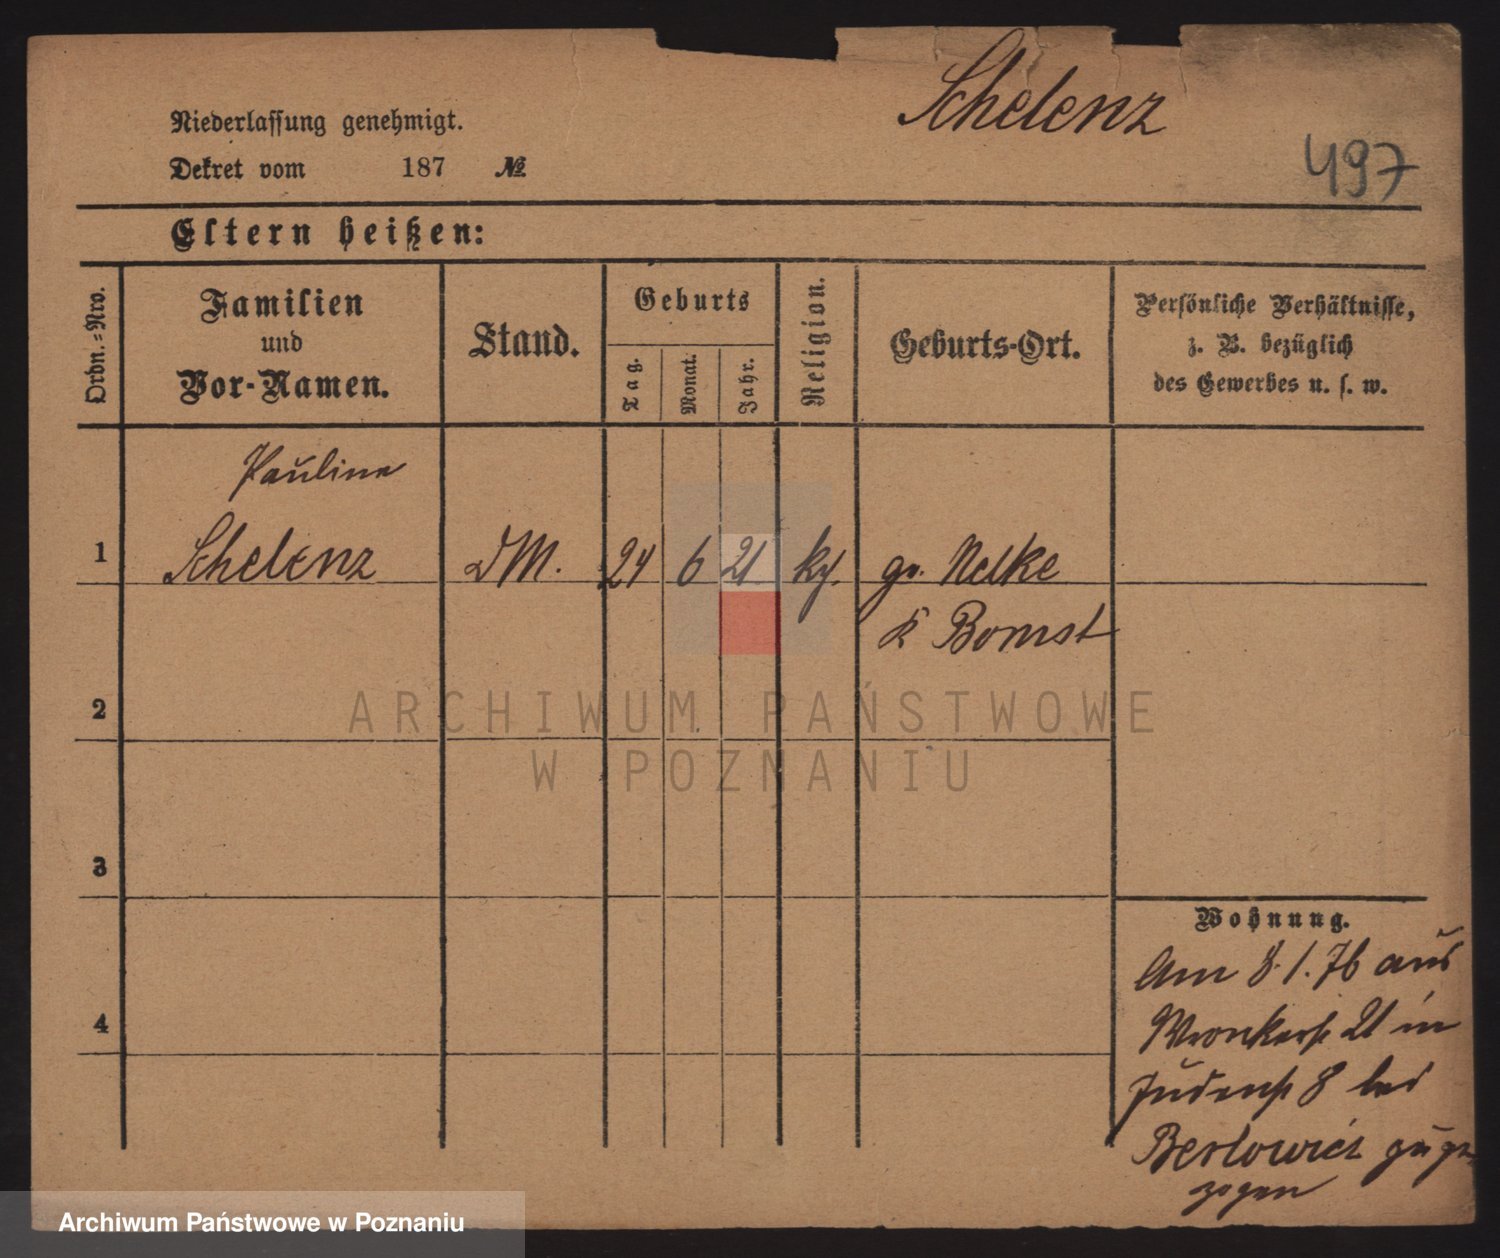 Schelenz
497
Niederlassung genehmigt.
Dekret vom 187 №
Eltern heißen:
Ordn.=Nro.
Familien
und
Vor-Namen.
Stand.
Geburts
Tag.
Monat.
Jahr.
Religion.
Geburts-Ort.
Persönliche Verhältnisse,
z. B. bezüglich
des Gewerbes u. s. w.
Pauline
1 Schelenz DM. 24 6 21 Nelke
Bomst
2
3
4
Wohnung.
Am 8. 1. 76 aus
Wronkerst 21 in
Judenst 8 bei
zogen
ARCHIWUM PAŃSTWOWE
W POZNANIU
Archiwum Państwowe w Poznaniu